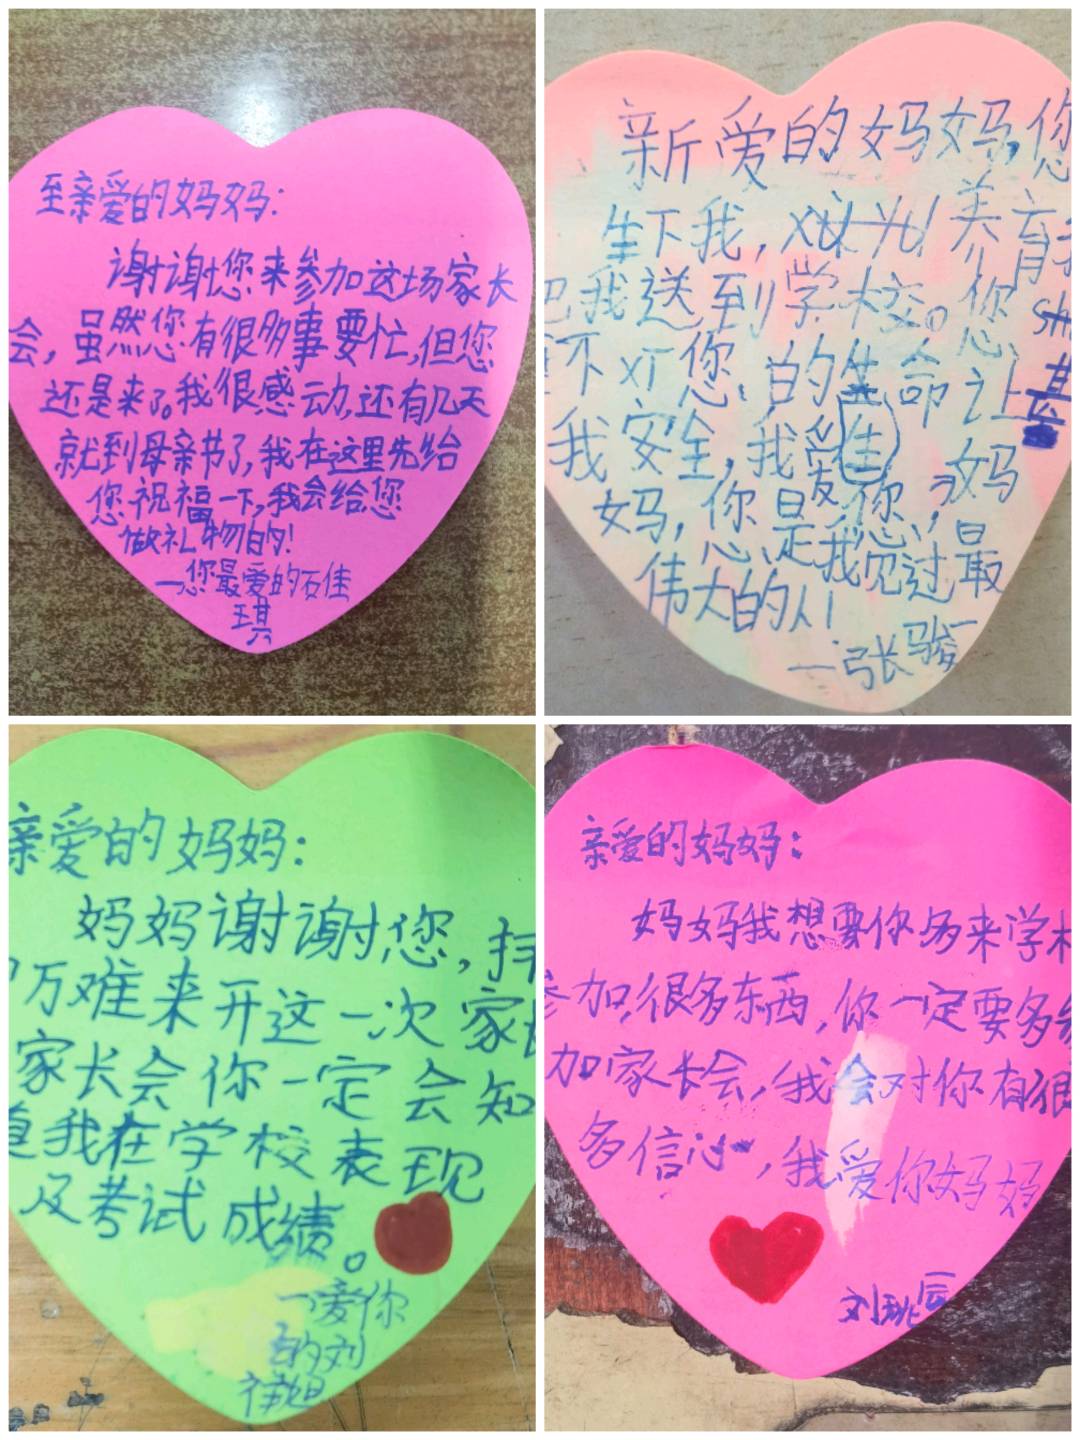 至亲爱的妈妈：
谢谢您来参加这场家长
会，虽然您有很多事要忙，但您
还是来了。我很感动，还有几天
就到母亲节了，我在这里先给
您祝福一下，我会给您
做礼物的！
—您最爱的石佳
琪
新爱的妈妈，您
生下我，xīn yǔ 养育
把我送到学校。您
不 您 的生命 让
我安全，我爱您，妈
妈，您是我见过最
伟大的人！
—张骏
亲爱的妈妈：
妈妈谢谢您，
万难来开这一次家
家长会你一定会知
道我在学校表现
及考试成绩。
—爱你
的刘
亲爱的妈妈：
妈妈我想要你多来学校
参加很多东西，你一定要多参
加家长会，我会对你有很
多信心，我爱你妈妈
刘 辰